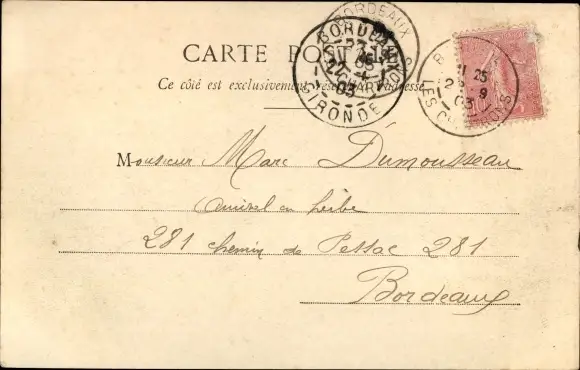 CARTE POSTALE
Ce côté est exclusivement réservé à l'adresse
BORDEAUX
BORDEAUX
GIRONDE
03
25
9
03
Monsieur Marc Dumousseau
Amiral en herbe
281 chemin de Pessac 281
Bordeaux